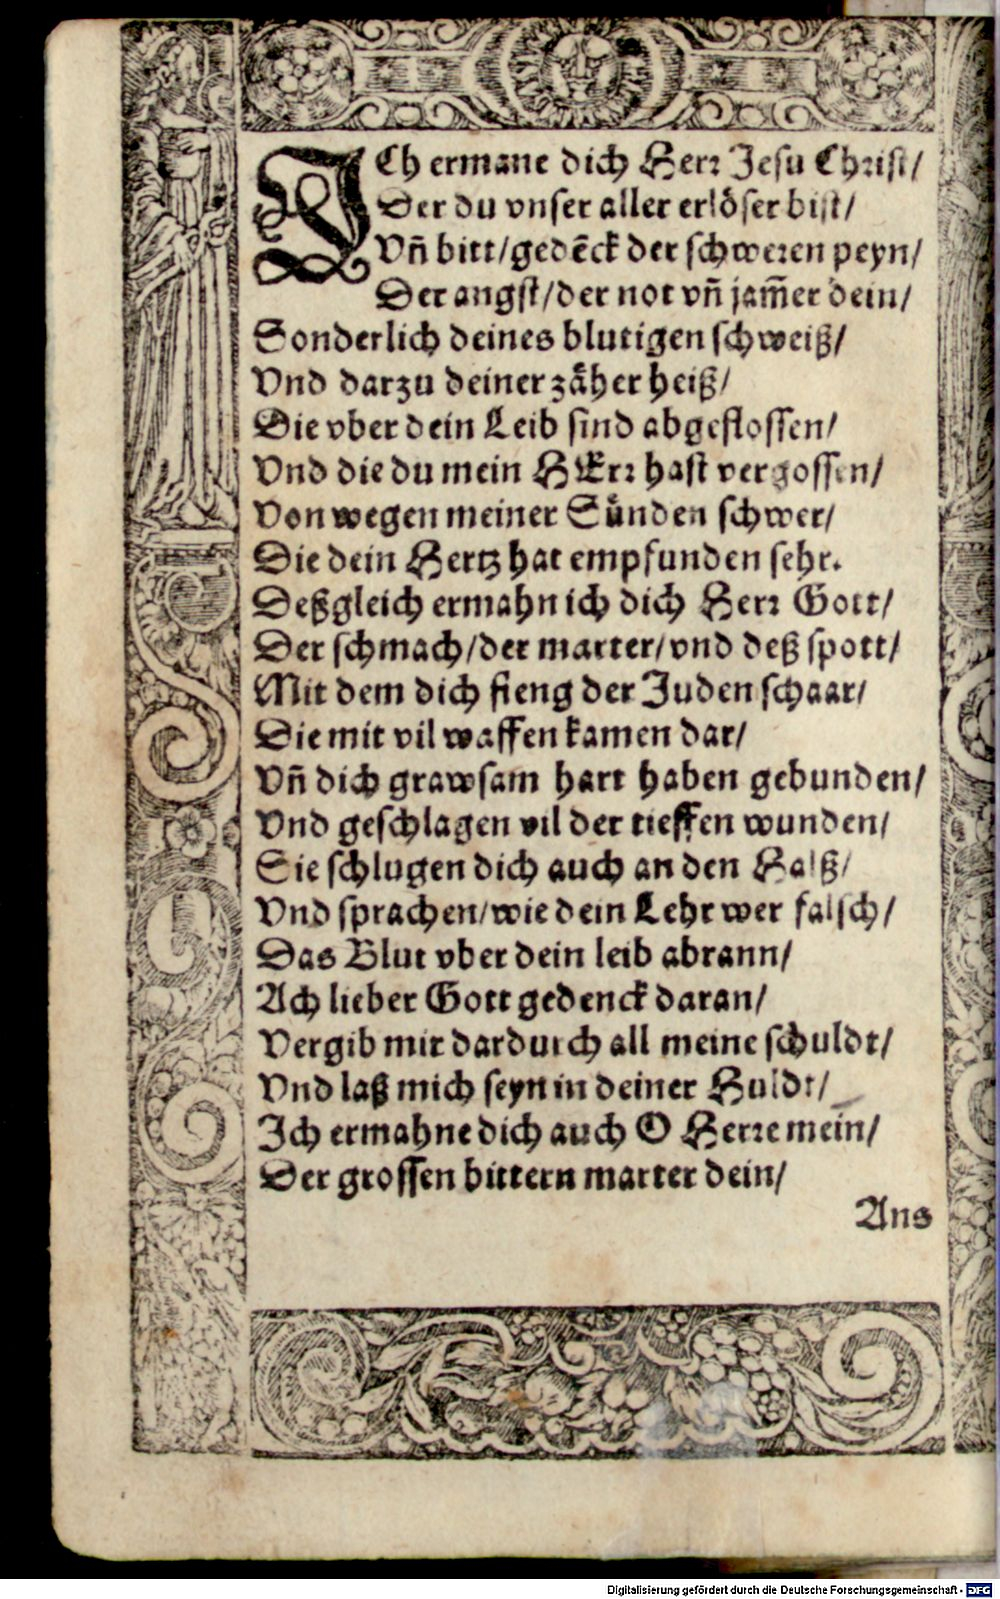 ICh ermane dich Herr Jesu Christ/
Der du vnser aller erlöser bist/
Vñ bitt/gedēck der schweren peyn/
Der angst/der not vñ jam̄er dein/
Sonderlich deines blutigen schweiß/
Vnd darzu deiner zäher heiß/
Die vber dein Leib sind abgeflossen/
Vnd die du mein HErr hast vergossen/
Von wegen meiner Sünden schwer/
Die dein Hertz hat empfunden sehr.
Deßgleich ermahn ich dich Herr Gott/
Der schmach/der marter/vnd deß spott/
Mit dem dich fieng der Juden schaar/
Die mit vil waffen kamen dar/
Vñ dich grawsam hart haben gebunden/
Vnd geschlagen vil der tieffen wunden/
Sie schlugen dich auch an den Halß/
Vnd sprachen/wie dein Lehr wer falsch/
Das Blut vber dein leib abrann/
Ach lieber Gott gedenck daran/
Vergib mir dardurch all meine schuldt/
Vnd laß mich seyn in deiner Huldt/
Ich ermahne dich auch O Herre mein/
Der grossen bittern marter dein/
Ans
Digitalisierung gefördert durch die Deutsche Forschungsgemeinschaft - DFG